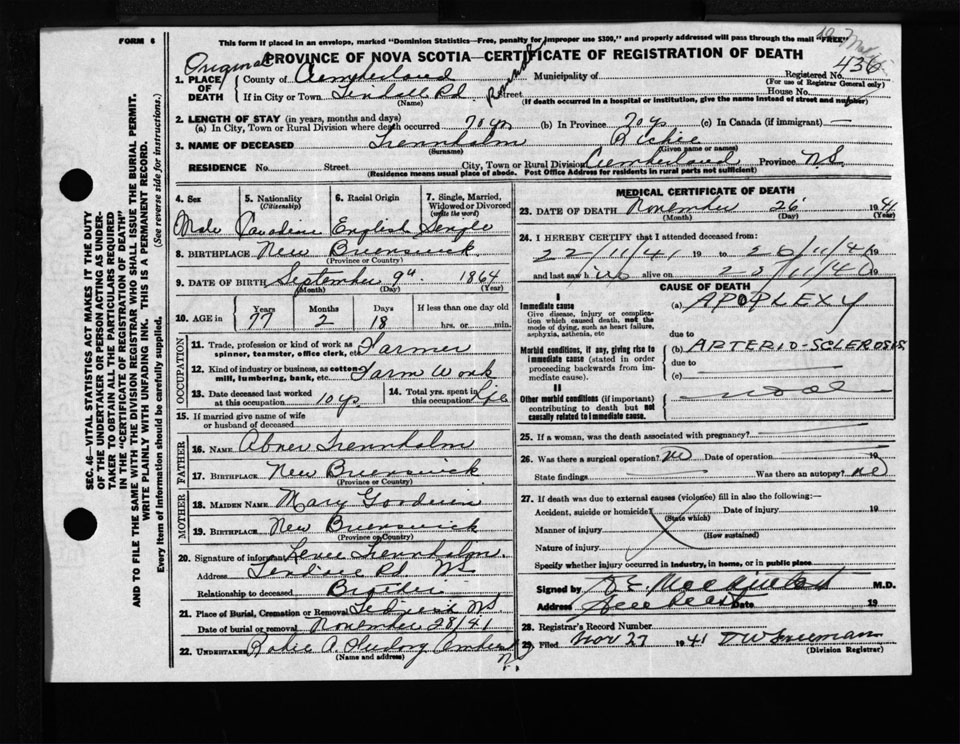 FORM 6
This form if placed in an envelope, marked "Dominion Statistics—Free, penalty for improper use $300," and properly addressed will pass through the mail "FREE"
Original
PROVINCE OF NOVA SCOTIA—CERTIFICATE OF REGISTRATION OF DEATH
436
1. PLACE OF DEATH
County of Cumberland
Municipality of
Registered No.
(For use of Registrar General only)
If in City or Town Rd
(Name)
Street
House No.
(If death occurred in a hospital or institution, give the name instead of street and number)
2. LENGTH OF STAY (in years, months and days)
(a) In City, Town or Rural Division where death occurred 70 yrs (b) In Province 70 yrs (c) In Canada (if immigrant) —
3. NAME OF DECEASED Trennholm Richie
(Surname) (Given name or names)
RESIDENCE No. Street City, Town or Rural Division Cumberland Province N.S.
(Residence means usual place of abode. Post Office Address for residents in rural parts not sufficient)
4. Sex
5. Nationality
(Citizenship)
6. Racial Origin
7. Single, Married, Widowed or Divorced
(write the word)
Male Canadian English Single
8. BIRTHPLACE New Brunswick
(Province or Country)
9. DATE OF BIRTH September 9th 1864
(Month) (Day) (Year)
10. AGE in
Years Months Days If less than one day old
77 2 18 hrs. or min.
OCCUPATION
11. Trade, profession or kind of work as spinner, teamster, office clerk, etc. Farmer
12. Kind of industry or business, as cotton mill, lumbering, bank, etc. Farm Work
13. Date deceased last worked at this occupation 10 yrs
14. Total yrs. spent in this occupation Life
15. If married give name of wife or husband of deceased
FATHER
16. NAME Abner Trennholm
17. BIRTHPLACE New Brunswick
(Province or Country)
MOTHER
18. MAIDEN NAME Mary Goodwin
19. BIRTHPLACE New Brunswick
(Province or Country)
20. Signature of informant Trennholm
Address Rd N.S.
Relationship to deceased Brother
21. Place of Burial, Cremation or Removal N.S.
Date of burial or removal November 28/41
22. UNDERTAKER
(Name and address)
MEDICAL CERTIFICATE OF DEATH
23. DATE OF DEATH November 26 1941
(Month) (Day) (Year)
24. I HEREBY CERTIFY that I attended deceased from:
22/11/41 19 to 26/11/41 19
and last saw him alive on 19
CAUSE OF DEATH
I
Immediate cause
Give disease, injury or complication which caused death, not the mode of dying, such as heart failure, asphyxia, asthenia, etc
(a) APOPLEXY
due to
Morbid conditions, if any, giving rise to immediate cause (stated in order proceeding backwards from immediate cause).
(b) ARTERIO-SCLEROSIS
due to
(c)
II
Other morbid conditions (if important) contributing to death but not causally related to immediate cause.
25. If a woman, was the death associated with pregnancy?
26. Was there a surgical operation? no Date of operation 19
State findings Was there an autopsy? no
27. If death was due to external causes (violence) fill in also the following:—
Accident, suicide or homicide? Date of injury 19
(State which)
Manner of injury
(How sustained)
Nature of injury
Specify whether injury occurred in industry, in home, or in public place
Signed by M.D.
Address Date 19
28. Registrar's Record Number
29. Filed Nov 27 1941
(Division Registrar)
SEC. 46—VITAL STATISTICS ACT MAKES IT THE DUTY OF THE UNDERTAKER OR PERSON ACTING AS UNDERTAKER TO OBTAIN ALL THE PARTICULARS REQUIRED IN THE "CERTIFICATE OF REGISTRATION OF DEATH" AND TO FILE THE SAME WITH THE DIVISION REGISTRAR WHO SHALL ISSUE THE BURIAL PERMIT.
WRITE PLAINLY WITH UNFADING INK. THIS IS A PERMANENT RECORD.
Every item of information should be carefully supplied. (See reverse side for instructions.)